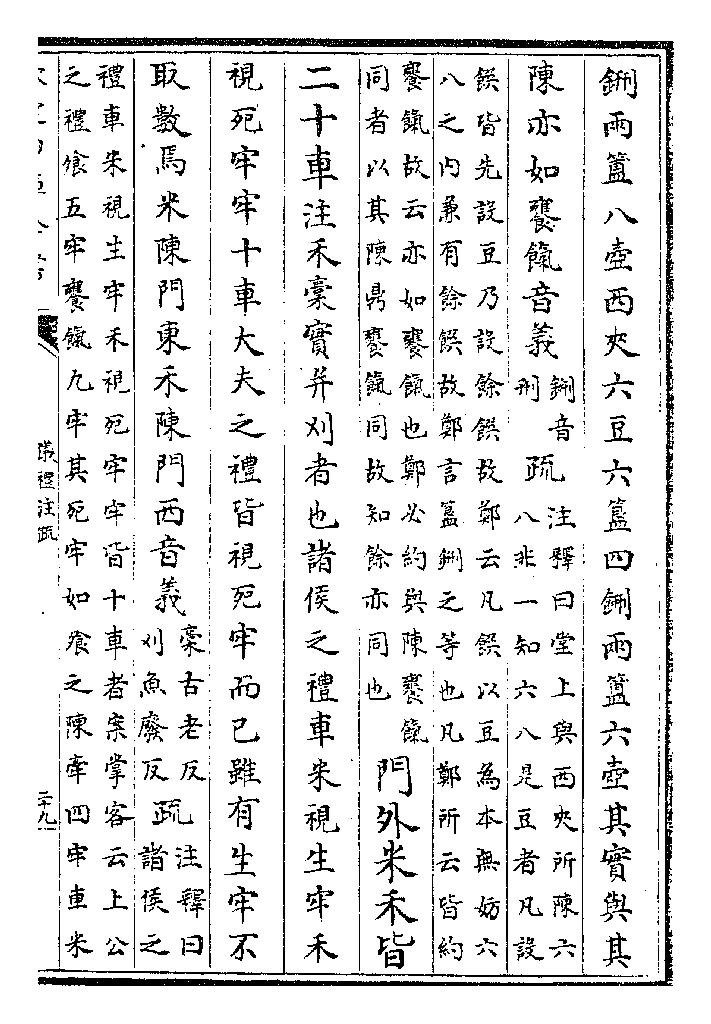 鉶兩簠八壺西夾六豆六簋四鉶兩簠六壺其實與其
陳亦如饔餼音義鉶音刑疏注釋曰堂上與西夾所陳六八非一知六八是豆者凡設
饌皆先設豆乃設餘饌故鄭云凡饌以豆為本無妨六
八之内兼有餘饌故鄭言簋鉶之等也凡鄭所云皆約
饔餼故云亦如饔餼也鄭必約與陳饔餼
同者以其陳鼎饔餼同故知餘亦同也
門外米禾皆
二十車注禾稾實并刈者也諸侯之禮車米視生牢禾
視死牢牢十車大夫之禮皆視死牢而已雖有生牢不
取數焉米陳門東禾陳門西音義稾古老反刈魚廢反疏注釋曰諸侯之
禮車米視生牢禾視死牢牢皆十車者案掌客云上公
之禮飧五牢饔餼九牢其死牢如飧之陳牽四牢車米
儀禮注疏
二十九